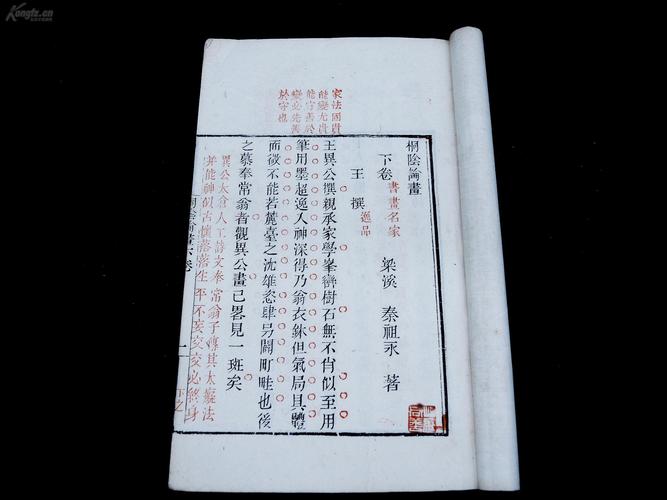 Kongfz.cn
家法固貴
能變尤貴
能守善於
變必先善
於守也
桐陰論畫
下卷 書畫名家 梁溪 秦祖永 著
王撰 逸品
王異公撰親承家學峯巒樹石無不肖似至用
筆用墨超逸入神深得乃翁衣鉢但氣局具體
而微不能若麓臺之沈雄恣肆另闢町畦也後
之慕奉常翁者觀異公畫已畧見一斑矣
異公太倉人工詩文奉常翁子得其太癡法
并能神似古懷落落生平不妄交交必終身
桐陰論畫下卷
一